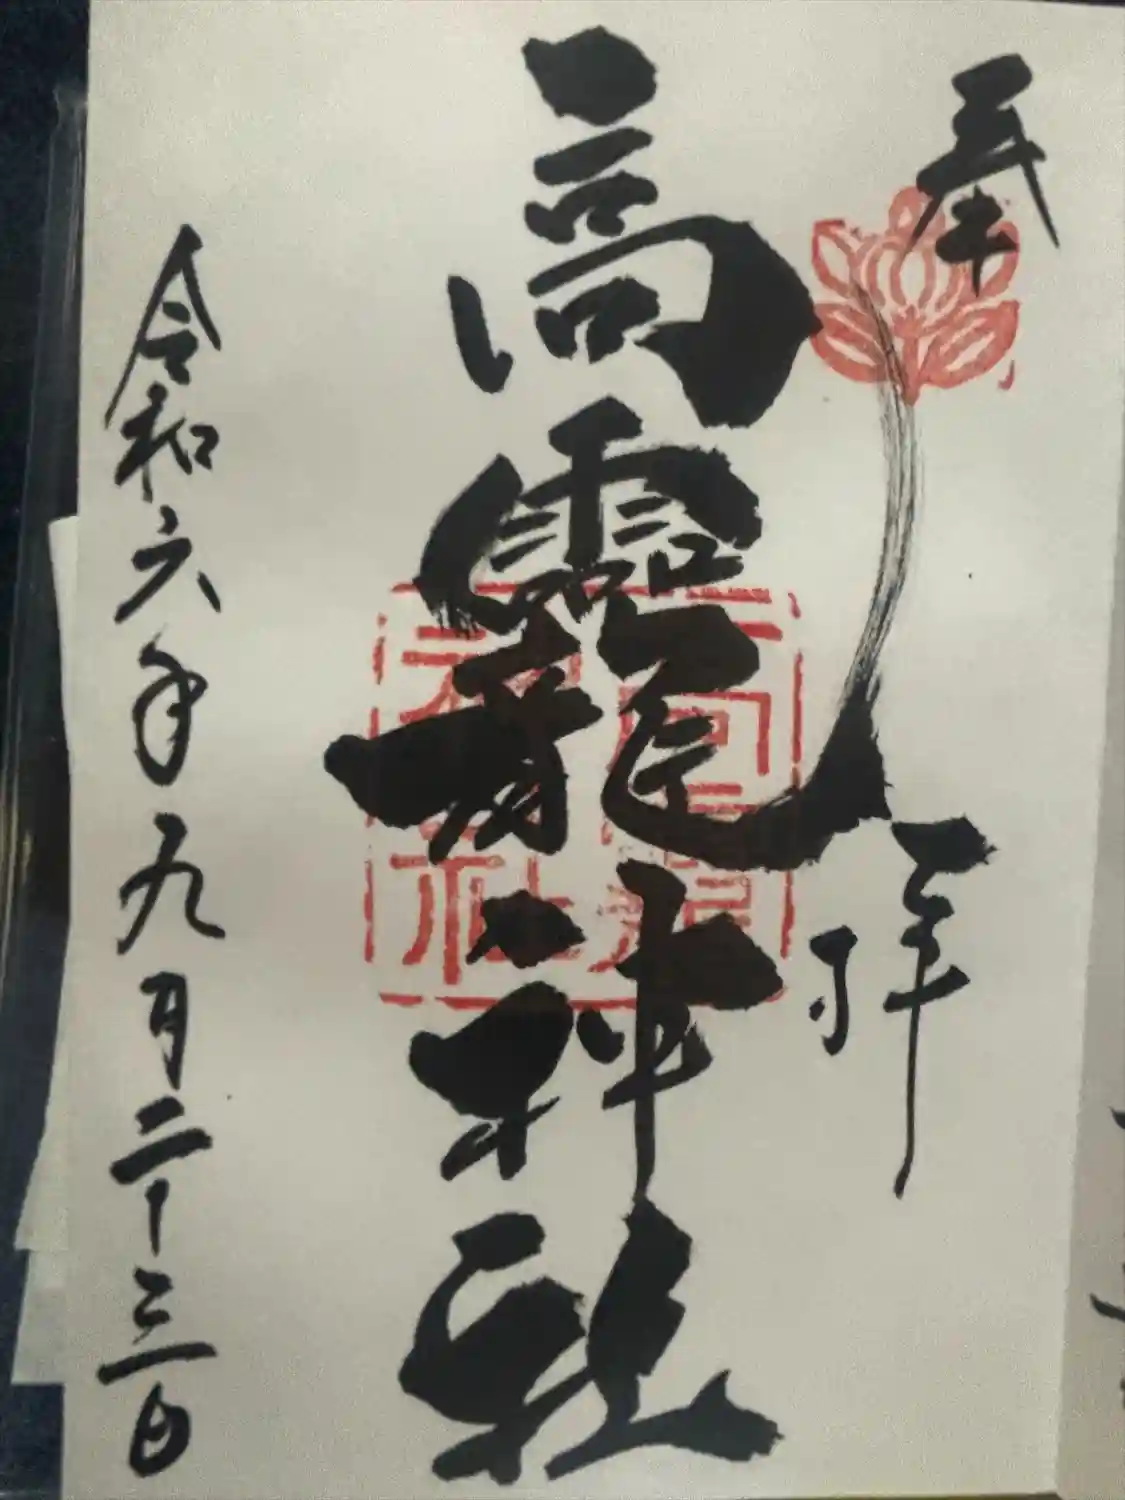 奉拝
高龗神社
高龗神社
令和六年九月二十三日